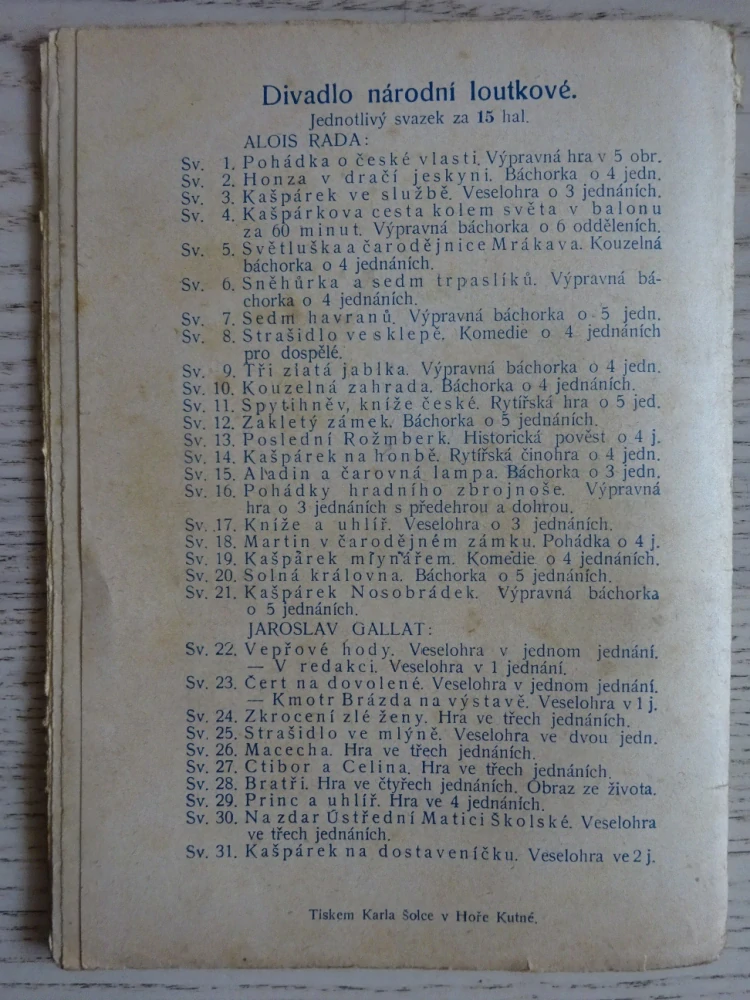 Divadlo národní loutkové.
Jednotlivý svazek za 15 hal.
ALOIS RADA:
Sv. 1. Pohádka o české vlasti. Výpravná hra v 5 obr.
Sv. 2. Honza v dračí jeskyni. Báchorka o 4 jedn.
Sv. 3. Kašpárek ve službě. Veselohra o 3 jednáních.
Sv. 4. Kašpárkova cesta kolem světa v balonu
za 60 minut. Výpravná báchorka o 6 odděleních.
Sv. 5. Světluška a čarodějnice Mrákava. Kouzelná
báchorka o 4 jednáních.
Sv. 6. Sněhůrka a sedm trpaslíků. Výpravná bá-
chorka o 4 jednáních.
Sv. 7. Sedm havranů. Výpravná báchorka o 5 jedn.
Sv. 8. Strašidlo ve sklepě. Komedie o 4 jednáních
pro dospělé.
Sv. 9. Tři zlatá jablka. Výpravná báchorka o 4 jedn.
Sv. 10. Kouzelná zahrada. Báchorka o 4 jednáních.
Sv. 11. Spytihněv, kníže české. Rytířská hra o 5 jed.
Sv. 12. Zakletý zámek. Báchorka o 5 jednáních.
Sv. 13. Poslední Rožmberk. Historická pověst o 4 j.
Sv. 14. Kašpárek na honbě. Rytířská činohra o 4 jedn.
Sv. 15. Aladin a čarovná lampa. Báchorka o 3 jedn.
Sv. 16. Pohádky hradního zbrojnoše. Výpravná
hra o 3 jednáních s předehrou a dohrou.
Sv. 17. Kníže a uhlíř. Veselohra o 3 jednáních.
Sv. 18. Martin v čarodějném zámku. Pohádka o 4 j.
Sv. 19. Kašpárek mlynářem. Komedie o 4 jednáních.
Sv. 20. Solná královna. Báchorka o 5 jednáních.
Sv. 21. Kašpárek Nosobrádek. Výpravná báchorka
o 5 jednáních.
JAROSLAV GALLAT:
Sv. 22. Vepřové hody. Veselohra v jednom jednání.
— V redakci. Veselohra v 1 jednání.
Sv. 23. Čert na dovolené. Veselohra v jednom jednání.
— Kmotr Brázda na výstavě. Veselohra v 1 j.
Sv. 24. Zkrocení zlé ženy. Hra ve třech jednáních.
Sv. 25. Strašidlo ve mlýně. Veselohra ve dvou jedn.
Sv. 26. Macecha. Hra ve třech jednáních.
Sv. 27. Ctibor a Celina. Hra ve třech jednáních.
Sv. 28. Bratři. Hra ve čtyřech jednáních. Obraz ze života.
Sv. 29. Princ a uhlíř. Hra ve 4 jednáních.
Sv. 30. Na zdar Ústřední Matici Školské. Veselohra
ve třech jednáních.
Sv. 31. Kašpárek na dostaveníčku. Veselohra ve 2 j.
Tiskem Karla Šolce v Hoře Kutné.